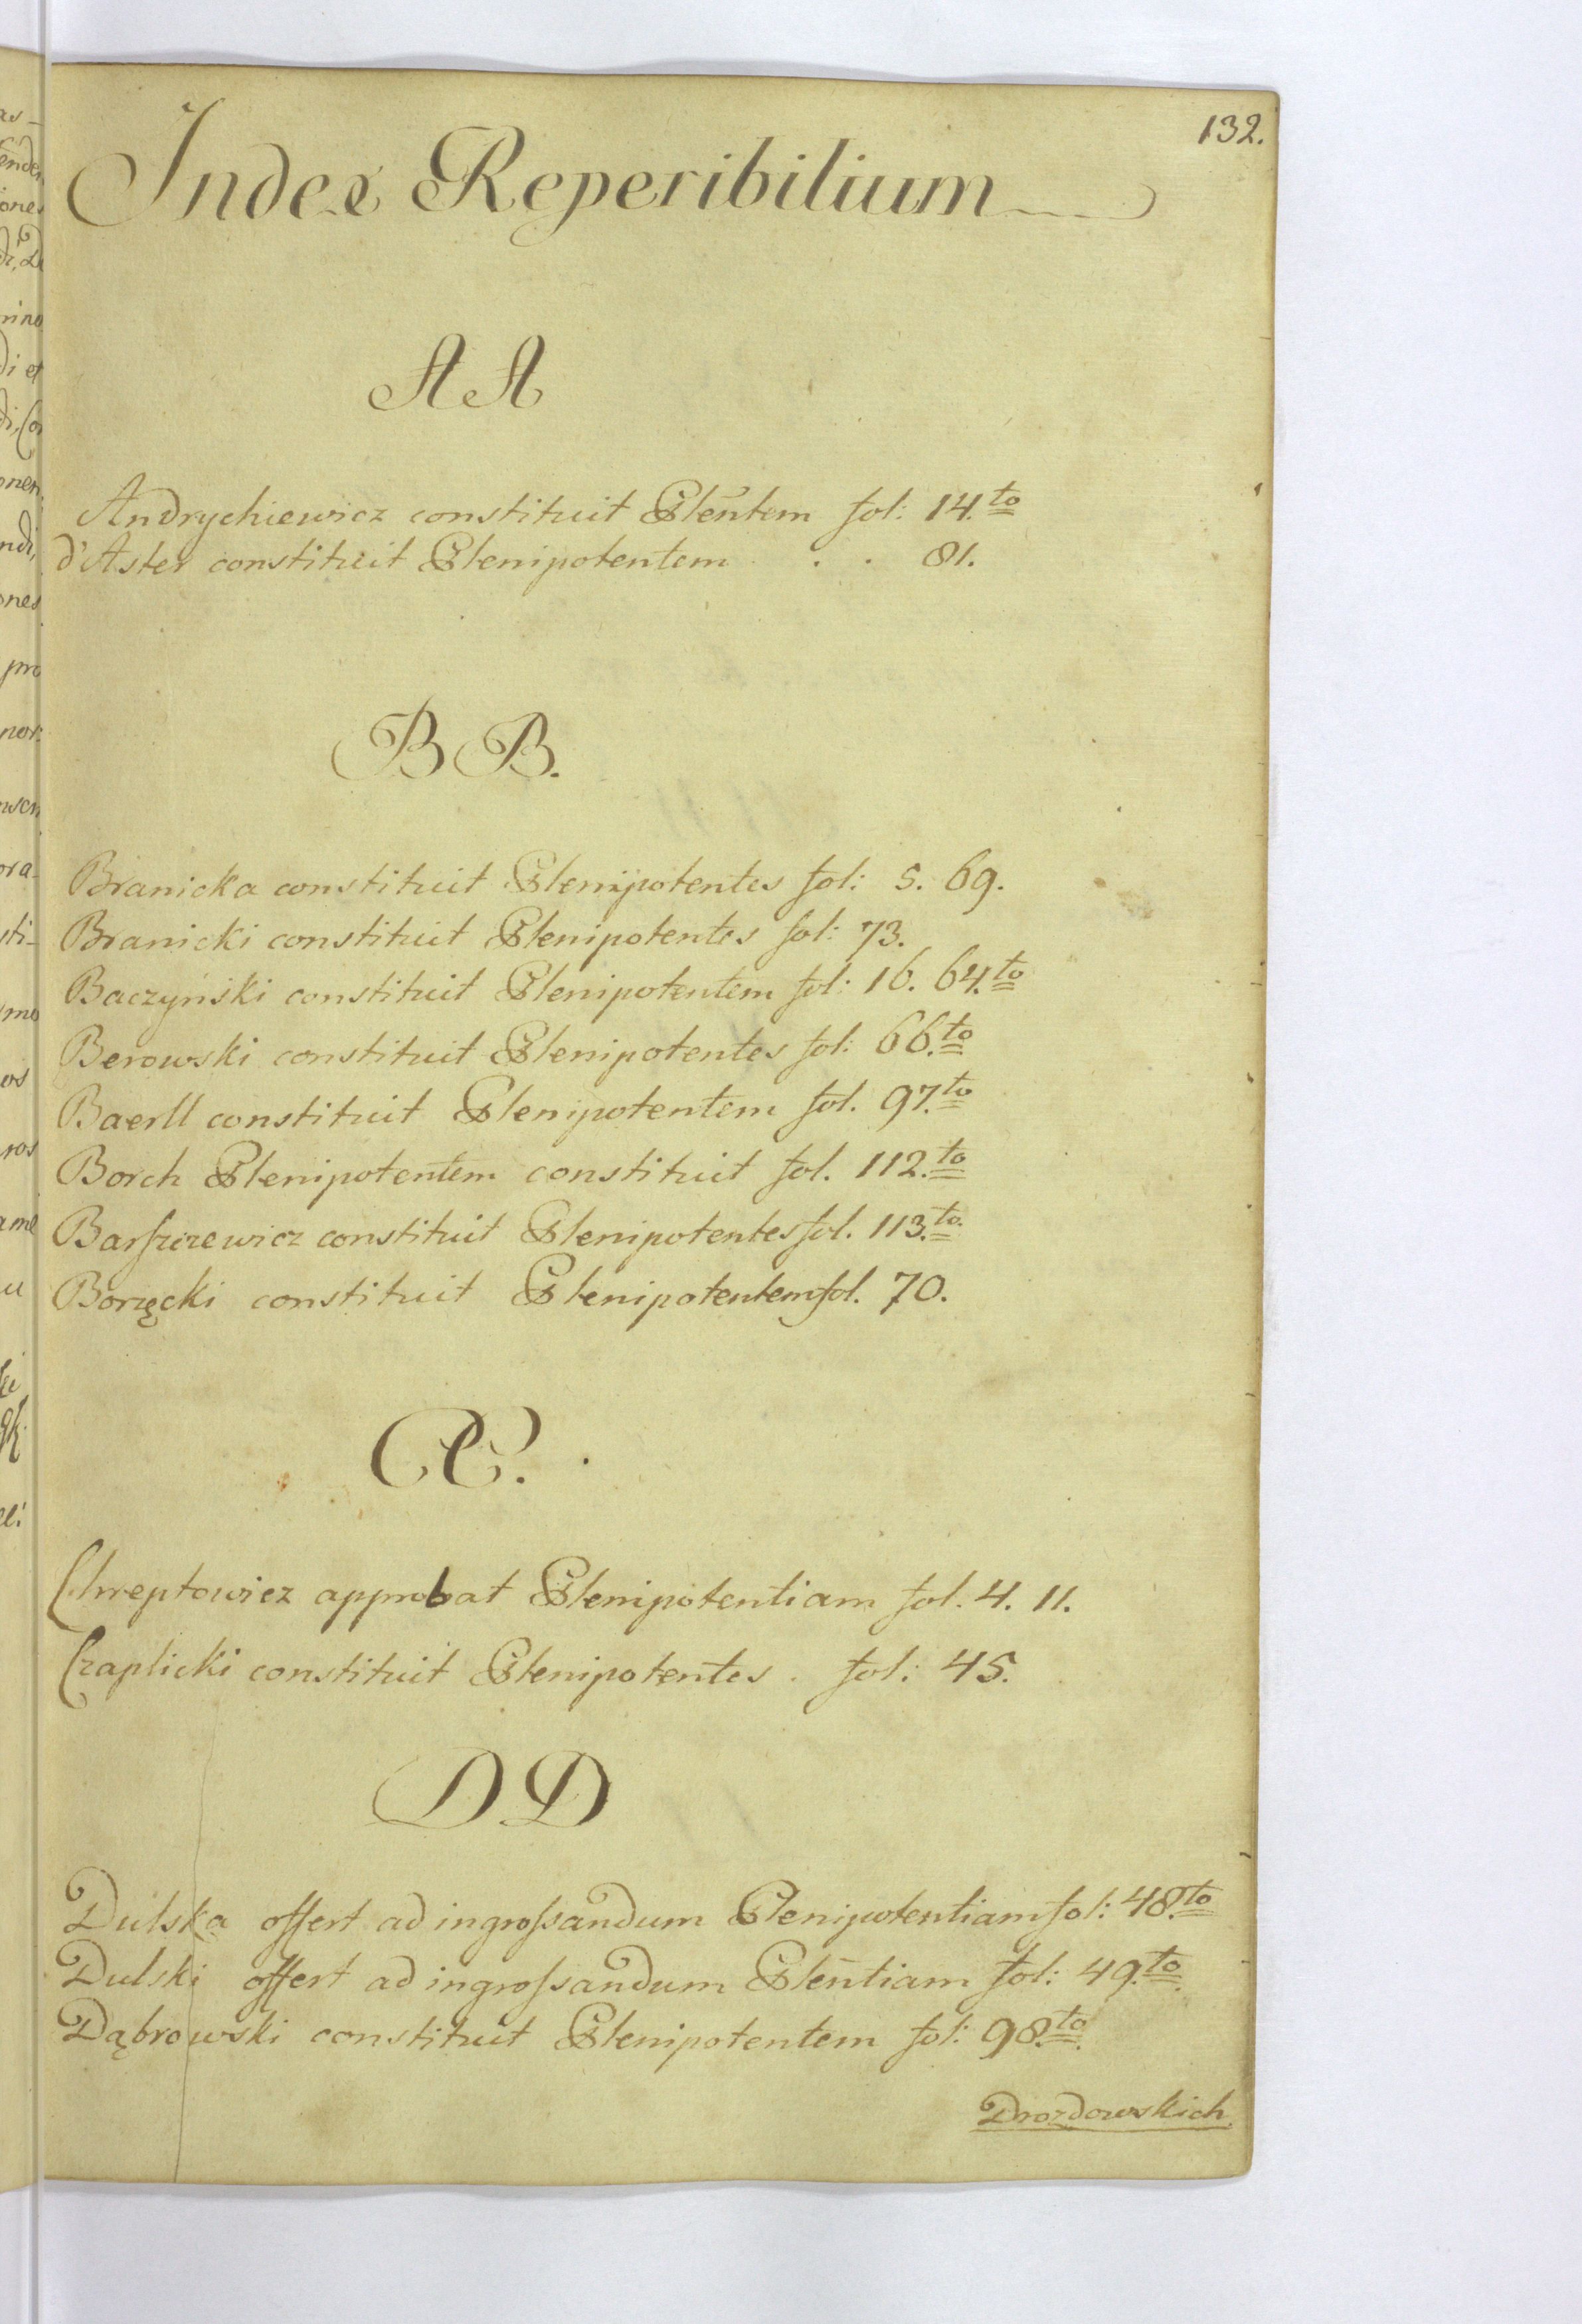 132.
Index Reperibilium
A A
Andrychiewicz constituit Plēntem fol: 14.to
d'Aster constituit Plenipotentem . . 81.
B B.
Branicka constituit Plenipotentes fol: 5. 69.
Branicki constituit Plenipotentes fol: 73.
Baczyński constituit Plenipotentem fol: 16. 64.to
Berowski constituit Plenipotentes fol: 66.to
Baerll constituit Plenipotentem fol. 97.to
Borch Plenipotentem constituit fol. 112.to
Barſzczewicz constituit Plenipotentes fol. 113.to
Borzęcki constituit Plenipotentem fol. 70.
CC.
Chreptowicz approbat Plenipotentiam fol. 4. 11.
Czaplicki constituit Plenipotentes . fol: 45.
D D
Dulska offert ad ingroſsandum Plenipotentiam fol: 48.to
Dulski offert ad ingroſsandum Plēntiam fol: 49.to
Dąbrowski constituit Plenipotentem fol: 98.to
Drozdowskich